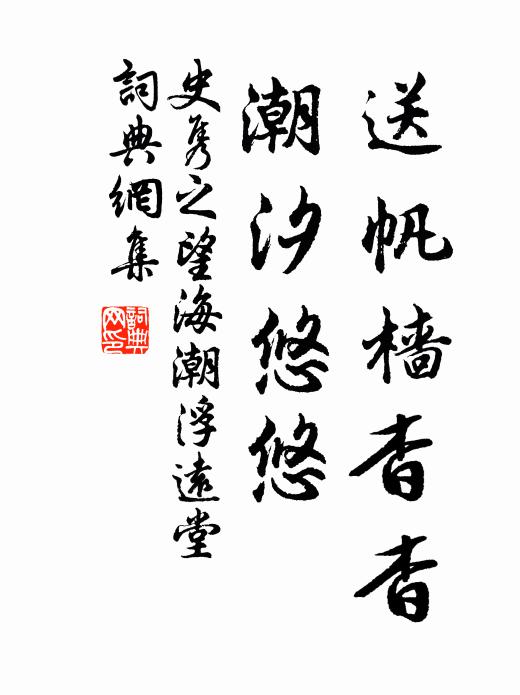 送帆樯杳杳
潮汐悠悠
史隽之望海潮浮远堂
詞典網集
詞典网印